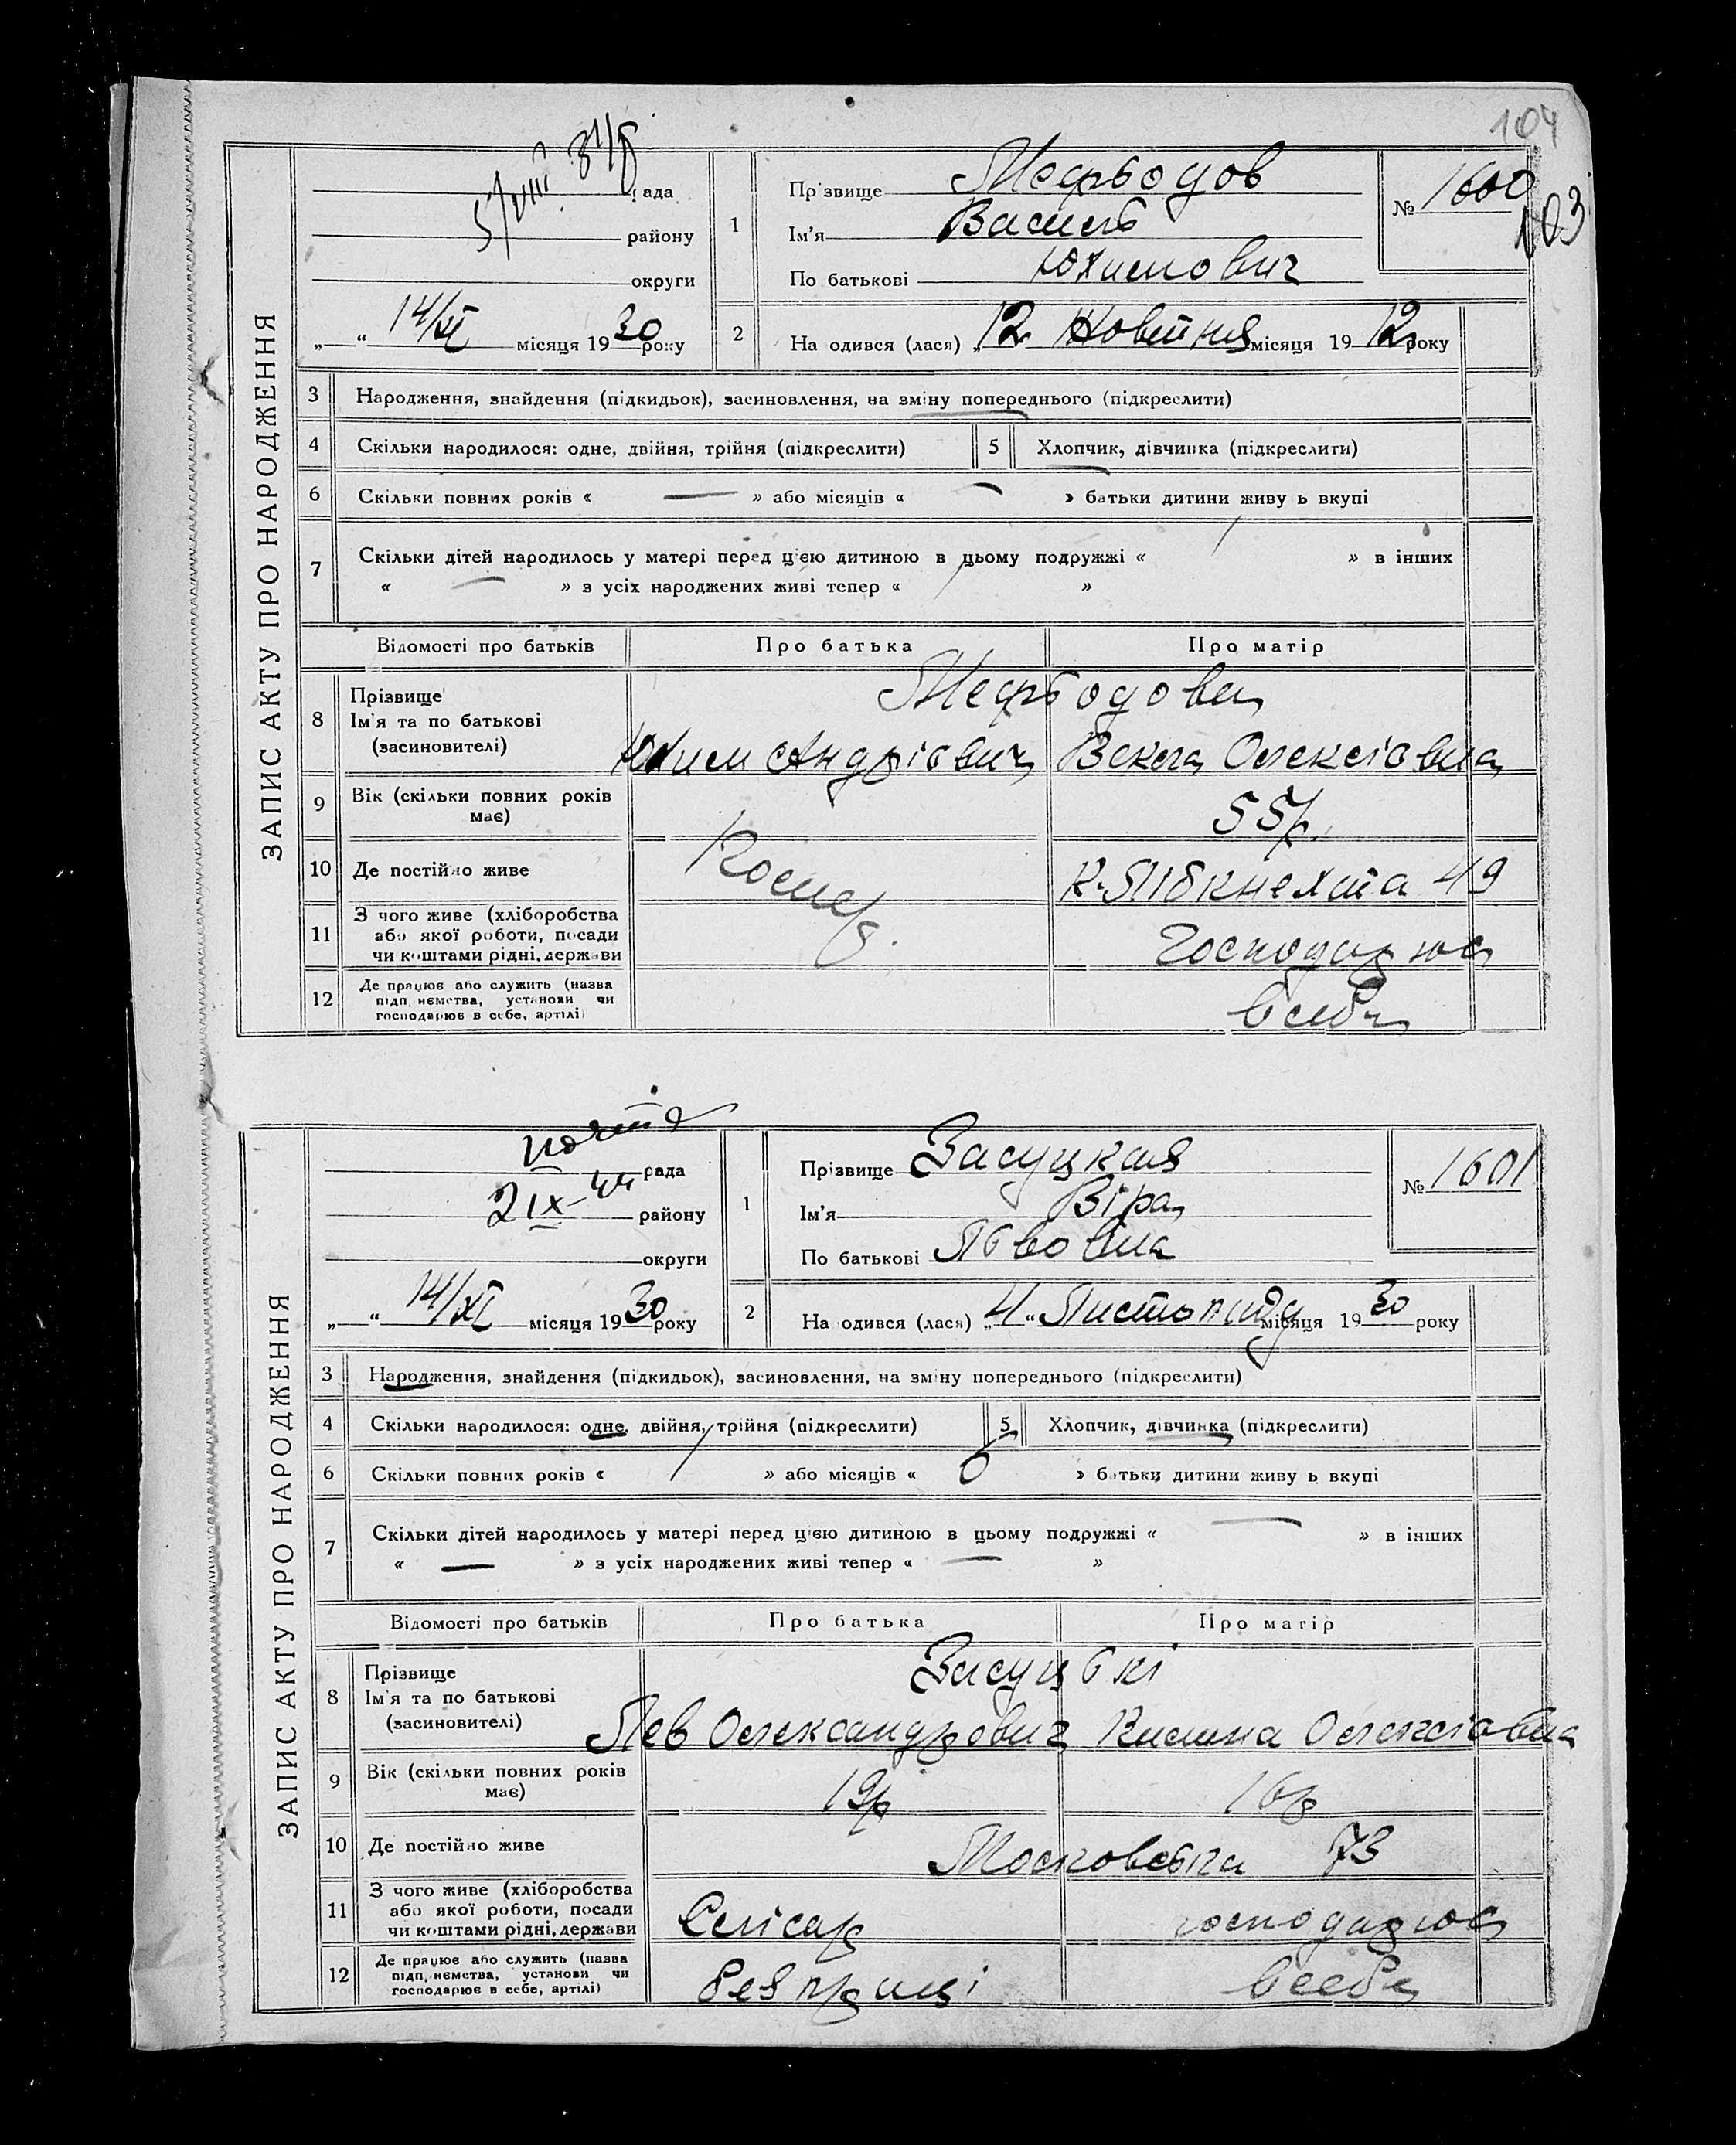 104
103
ЗАПИС АКТУ ПРО НАРОДЖЕННЯ
рада
району
округи
14/XI місяця 1930 року
1
Прізвище Мефьодов
Ім'я Василь
По батькові Юхимович
№ 1600
2
Народився (лася) „12 Жовтня місяця 1912 року
3 Народження, знайдення (підкидьок), засиновлення, на зміну попереднього (підкреслити)
4 Скільки народилося: одне, двійня, трійня (підкреслити) 5 Хлопчик, дівчинка (підкреслити)
6 Скільки повних років « — » або місяців « — » батьки дитини живуть вкупі
7 Скільки дітей народилось у матері перед цією дитиною в цьому подружжі « / » в інших
« — » з усіх народжених живі тепер « / »
Відомості про батьків Про батька Про матір
8 Прізвище
Ім'я та по батькові
(засиновителі)
Мефьодови
Юхим Андрієвич Векла Олексієвна
9 Вік (скільки повних років має) 55 р.
10 Де постійно живе К. Лібкнехта 49
11 З чого живе (хліборобства або якої роботи, посади чи коштами рідні, держави Господарює
12 Де працює або служить (назва підприємства, установи чи господарює в себе, артілі) в себе
ЗАПИС АКТУ ПРО НАРОДЖЕННЯ
рада
2 IX-44 району
округи
14/XI місяця 1930 року
1
Прізвище Засуцкая
Ім'я Віра
По батькові Львовна
№ 1601
2
Народився (лася) „4“ Листопаду місяця 1930 року
3 Народження, знайдення (підкидьок), засиновлення, на зміну попереднього (підкреслити)
4 Скільки народилося: одне, двійня, трійня (підкреслити) 5 Хлопчик, дівчинка (підкреслити)
6 Скільки повних років « / » або місяців « 6 » батьки дитини живуть вкупі
7 Скільки дітей народилось у матері перед цією дитиною в цьому подружжі « — » в інших
« — » з усіх народжених живі тепер « — »
Відомості про батьків Про батька Про матір
8 Прізвище
Ім'я та по батькові
(засиновителі)
Засуцькі
Лев Олександрович Олексієвна
9 Вік (скільки повних років має) 19р 16р
10 Де постійно живе Московська 73
11 З чого живе (хліборобства або якої роботи, посади чи коштами рідні, держави Слісар господарює
12 Де працює або служить (назва підприємства, установи чи господарює в себе, артілі) без праці в себе